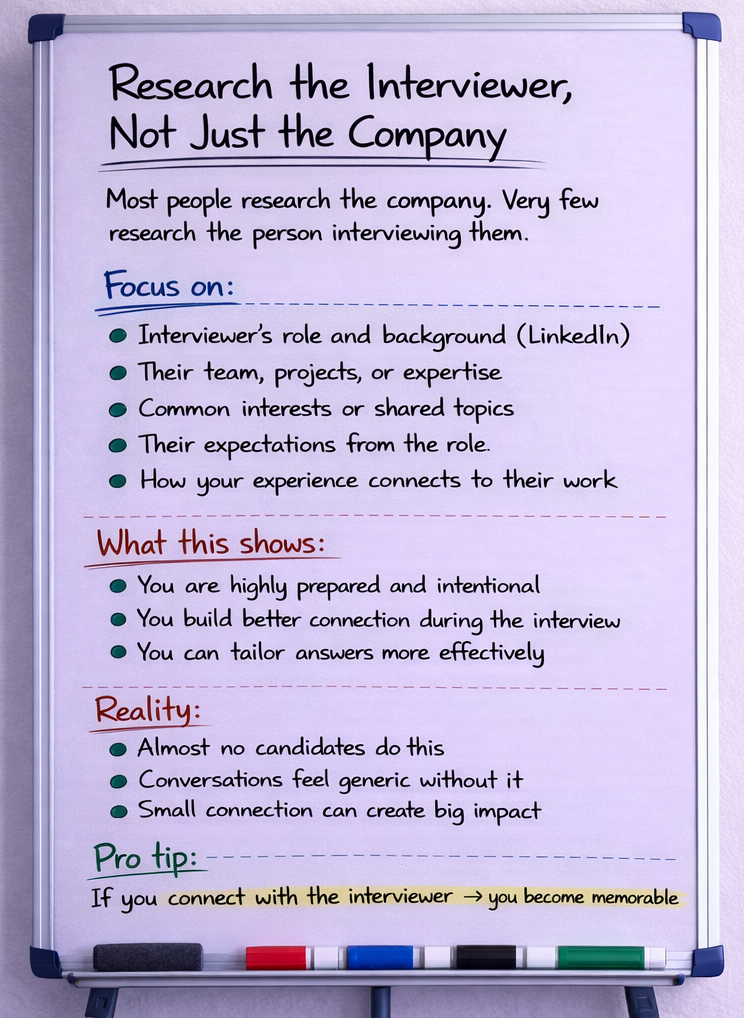 Research the Interviewer,
Not Just the Company
Most people research the company. Very few
research the person interviewing them.
Focus on:
Interviewer's role and background (LinkedIn)
Their team, projects, or expertise
Common interests or shared topics
Their expectations from the role.
How your experience connects to their work
What this shows:
You are highly prepared and intentional
You build better connection during the interview
You can tailor answers more effectively
Reality:
Almost no candidates do this
Conversations feel generic without it
Small connection can create big impact
Pro tip:
If you connect with the interviewer → you become memorable